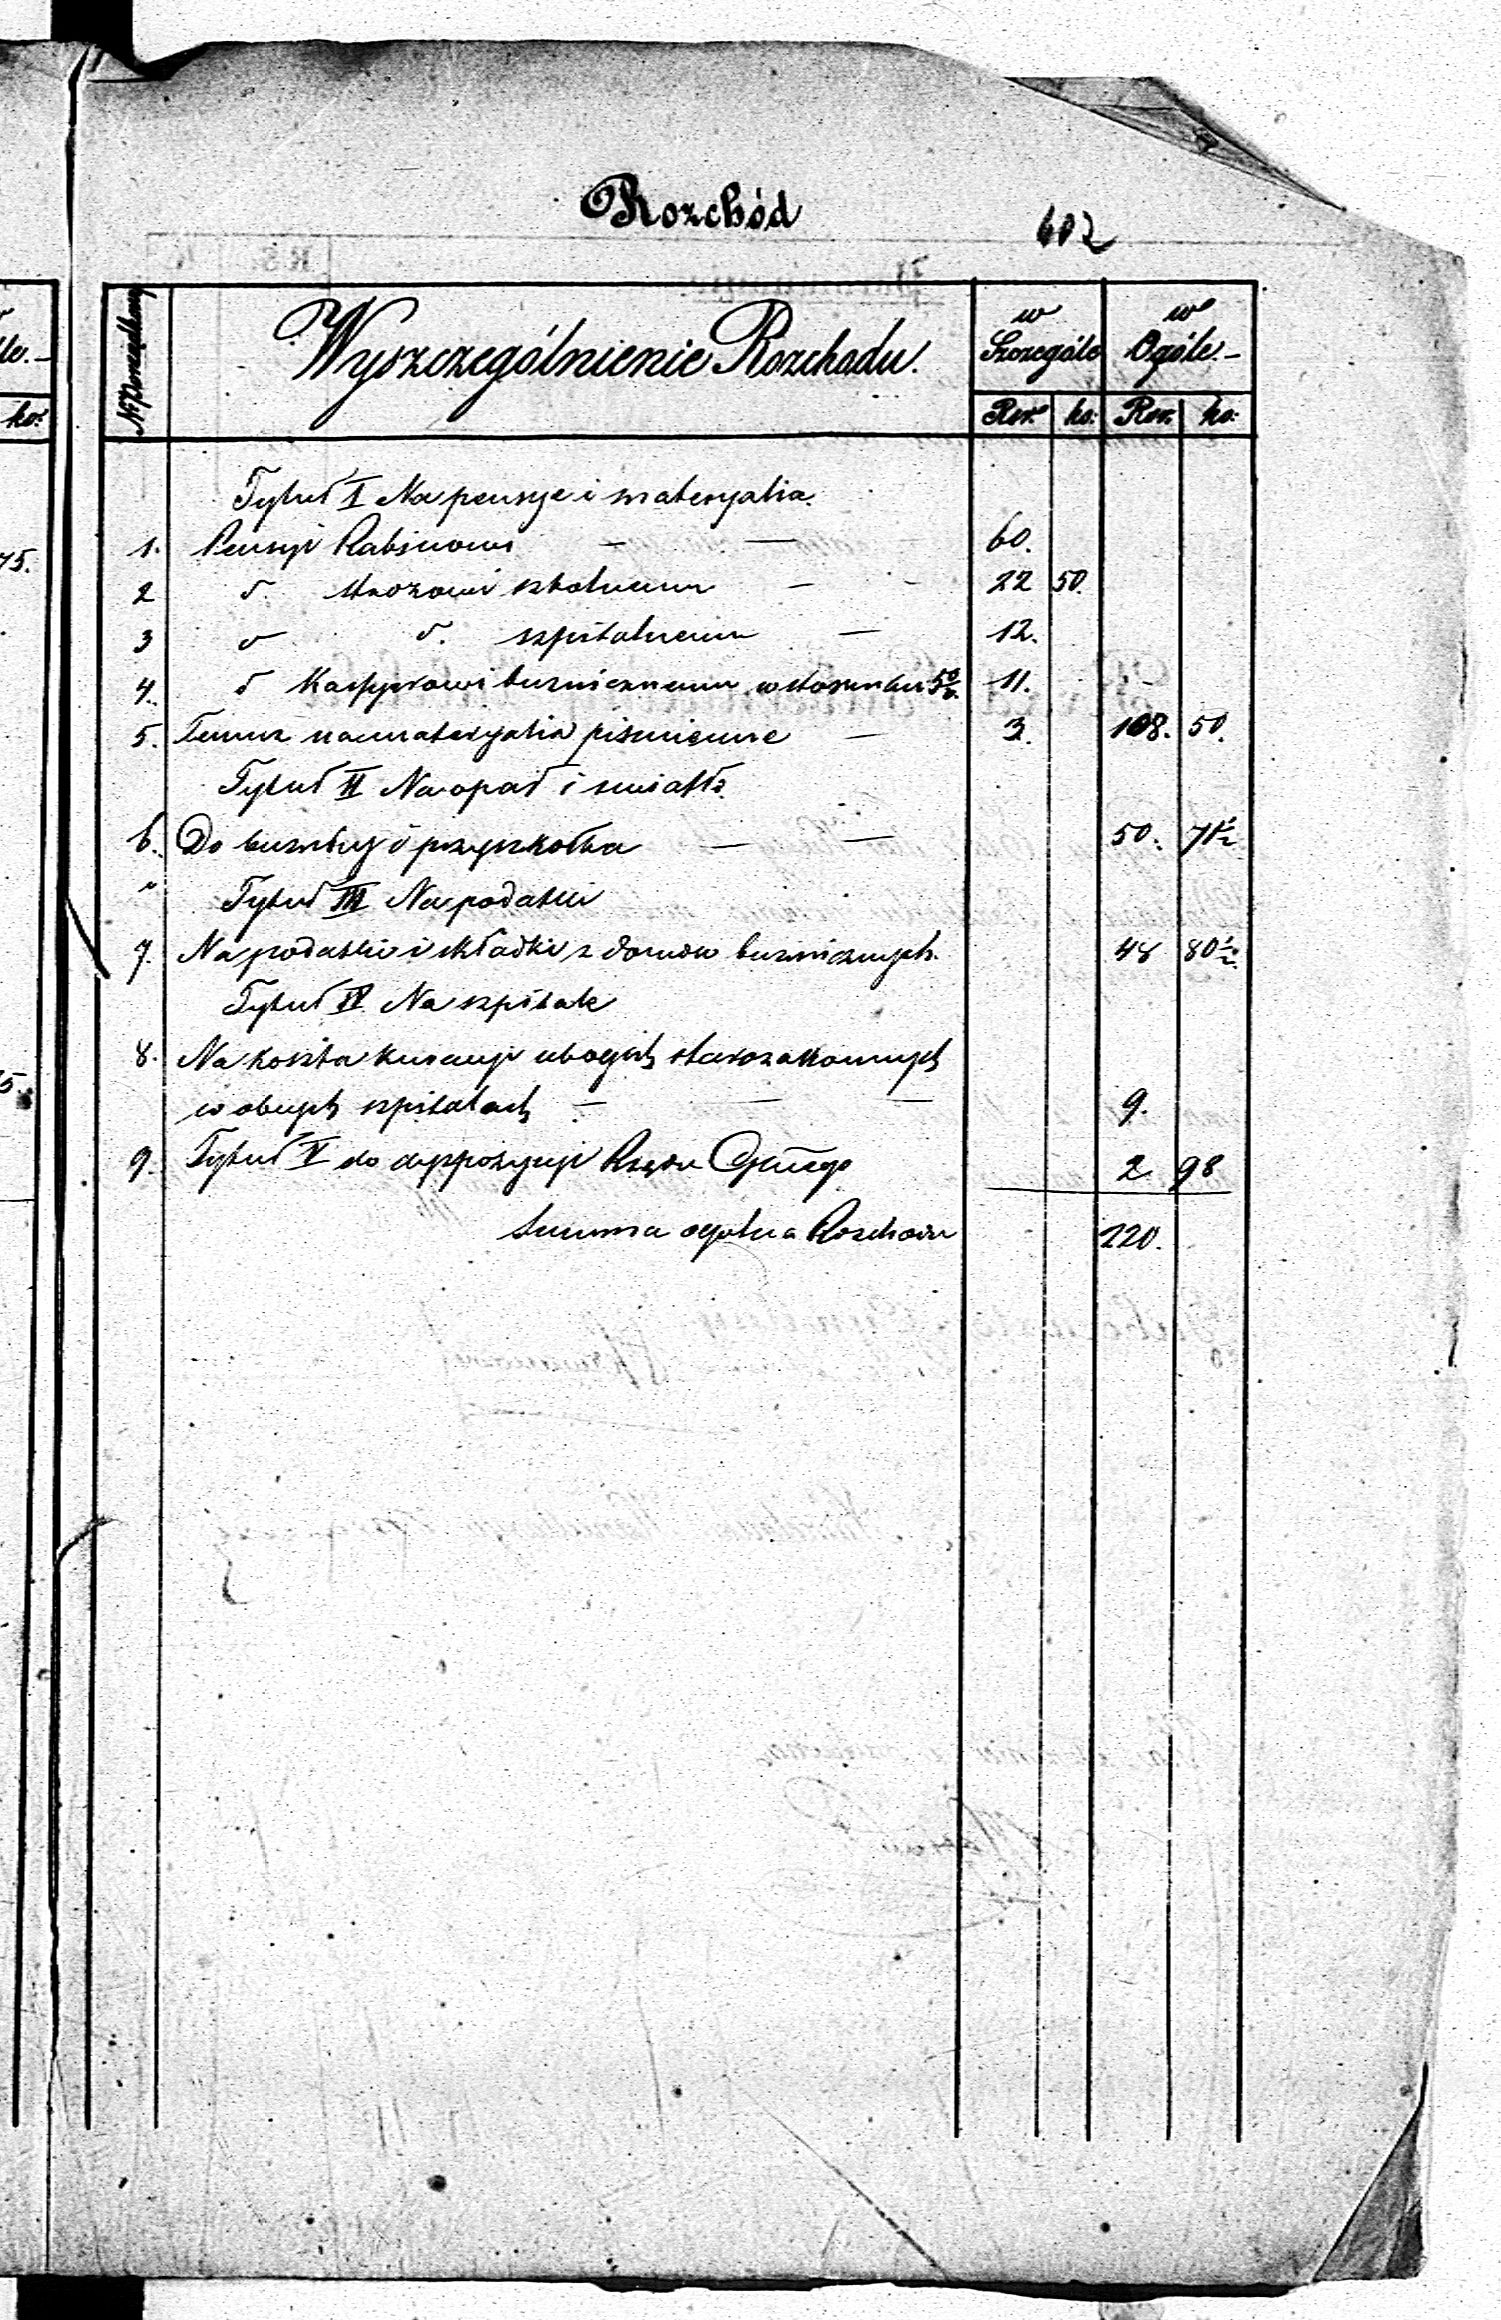 Rozchód
602
№ Porządkowy
Wyszczególnienie Rozchodu.
w Szczególe
w Ogóle
Rsr. ko: Rsr. ko:
Tytuł I Na pensye i materyalia.
1. Pensyi Rabinowi — — 60.
2 d. stróżowi szkolnemu — - 22 50.
3 d d. szpitalnemu — 12.
4. d Kassyerowi bużnicznemu w stosunku 11.
5. Temuż na materyalia piśmienne — 3. 108. 50.
Tytuł II Na opał i swiatło.
6. Do bużnicy i przyszkołka — — 50. 71½
" Tytuł III Na podatki
7. Na podatki i składki z domów bużnicznych. 48 80½.
Tytuł IV Na szpitale
8. Na koszta kuracyi ubogich starozakonnych
w obcych szpitalach — — — 9.
9. Tytuł V do dyspozycyi Rządu 2 98
Summa ogólna Rozchodu 220.
ko:
75.
5.